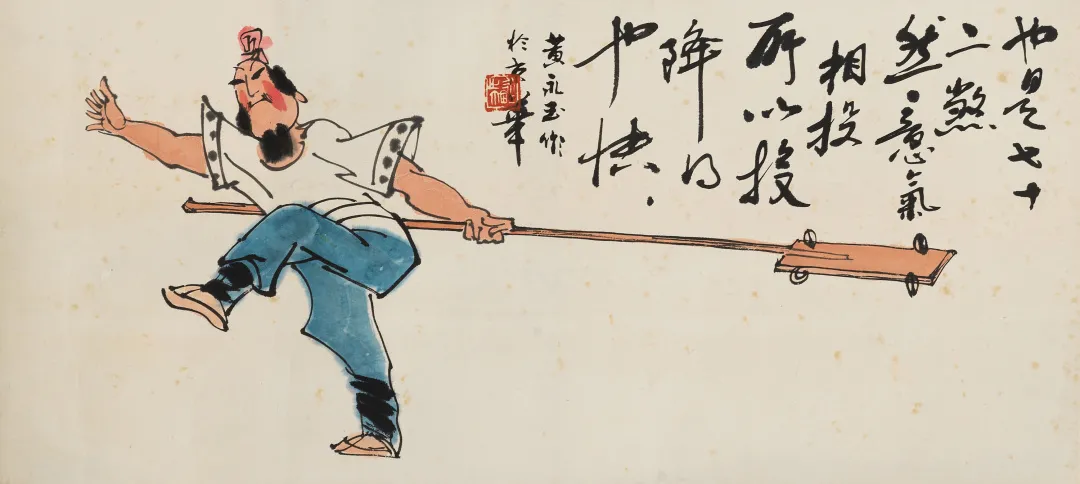 也是七十
二煞
然意氣
相投
所以投
降的
也快
黄永玉作
於京華